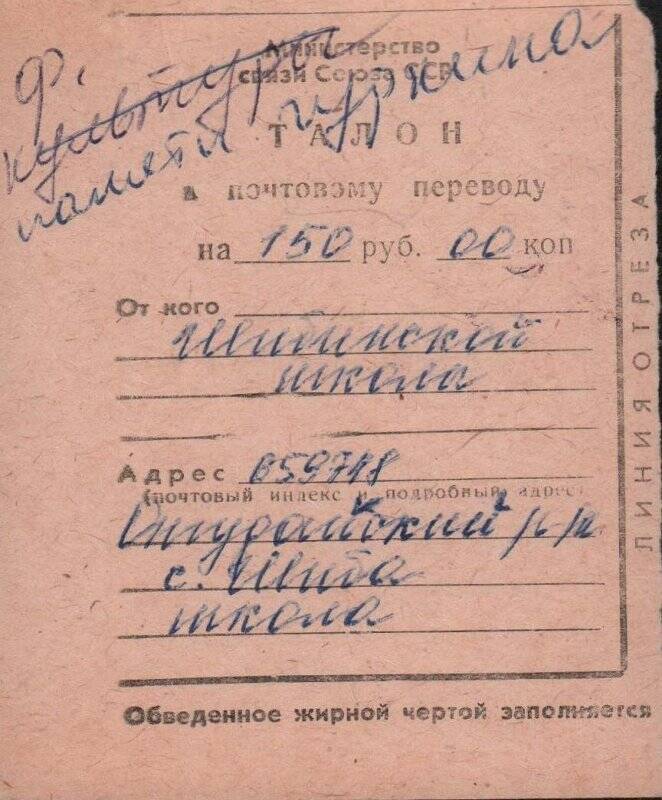 Ф.
культуры
памяти Гуркина
Министерство
связи Союза ССР
ТАЛОН
к почтовому переводу
на 150 руб. 00 коп
От кого
Шибинской
школа
Адрес 659748
(почтовый индекс и подробный адрес)
Онгудайский р-н
с. Шиба
школа
ЛИНИЯ ОТРЕЗА
Обведенное жирной чертой заполняется